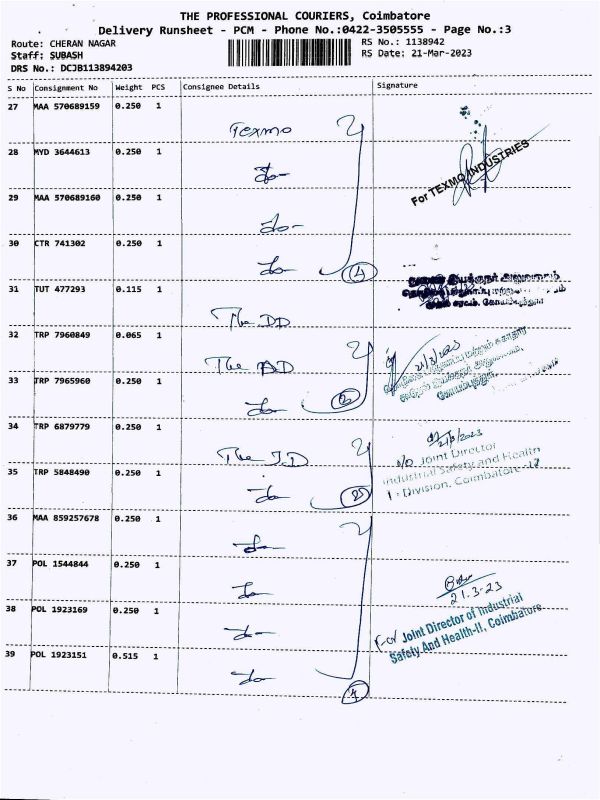 THE PROFESSIONAL COURIERS, Coimbatore
Delivery Runsheet - PCM - Phone No.:0422-3505555 - Page No.:3
Route: CHERAN NAGAR
RS No.: 1138942
Staff: SUBASH
RS Date: 21-Mar-2023
DRS No.: DCJB113894203
S No Consignment No Weight PCS Consignee Details Signature
27 MAA 570689159 0.250 1
Texmo
28 MYD 3644613 0.250 1
do-
For TEXMO INDUSTRIES
29 MAA 570689160 0.250 1
do-
30 CTR 741302 0.250 1
do- 4
31 TUT 477293 0.115 1
The DD
32 TRP 7960849 0.065 1
The AD
21/3/2023
33 TRP 7965960 0.250 1
do-
34 TRP 6879779 0.250 1
The J.D
21/3/2023
Joint Director
Industrial Safety and Health
35 TRP 5848490 0.250 1
do- 2
I - Division, Coimbatore
36 MAA 859257678 0.250 1
do-
37 POL 1544844 0.250 1
do-
21.3-23
38 POL 1923169 0.250 1
do-
For Joint Director of Industrial
Safety And Health-II, Coimbatore
39 POL 1923151 0.515 1
do-